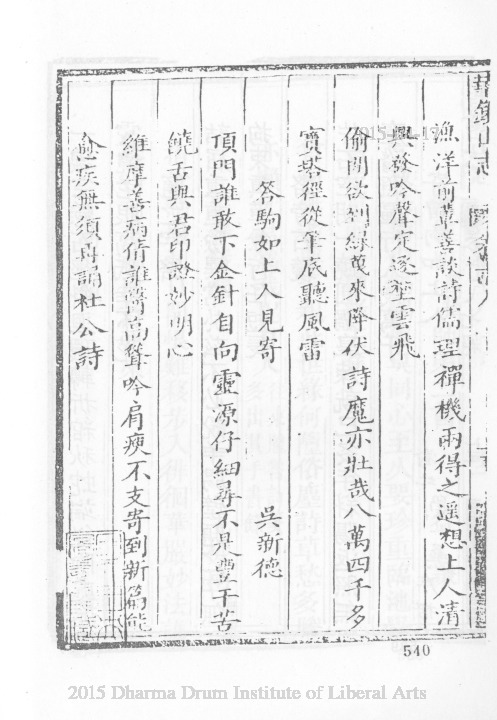 漁洋前輩善談詩儒理禪機兩得之遥想上人清
興發吟聲定逐壑雲飛
偷閒欲到綠蘿來降伏詩魔亦壯哉八萬四千多
寶塔徑從筆底聽風雷
答駒如上人見寄 吳新德
頂門誰敢下金針自向靈源仔細尋不是豐干苦
饒舌與君印證妙明心
維摩善病倩誰醫高聳吟肩瘦不支寄到新篇能
愈疾無須再誦杜公詩
540
2015 Dharma Drum Institute of Liberal Arts